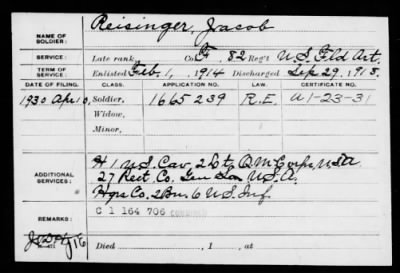 NAME OF SOLDIER: Reisinger, Jacob
SERVICE: Late rank, Co. F, 82 Reg't U.S. Fld Art.
TERM OF SERVICE: Enlisted Feb. 1, 1914 Discharged Sep. 29, 1915.
DATE OF FILING. CLASS. APPLICATION NO. LAW. CERTIFICATE NO.
1930 Apr 10. Soldier, 1665239 R.E. A1-23-31
Widow,
Minor,
ADDITIONAL SERVICES: H 1 U.S. Cav, 2 Lt, Q M Corps, U.S.A
27 Rect. Co. Gen Ser U.S.A.
Hqrs Co. 2 Bn. 6 U.S. Inf.
REMARKS: C 1 164 706
Died , 1 , at